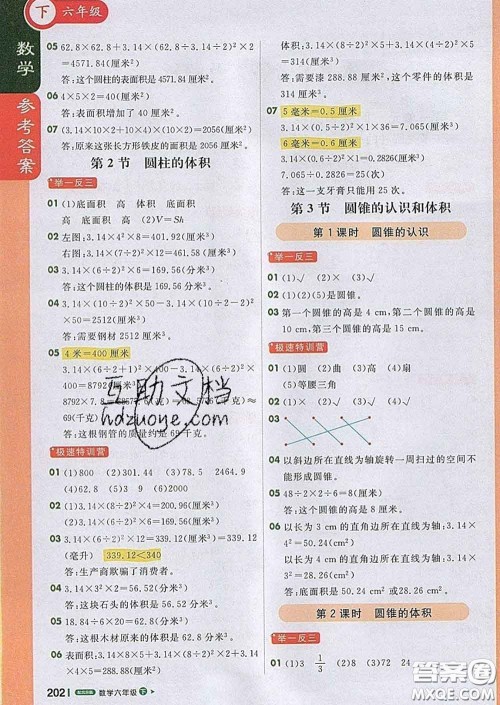 下 六年级
数学
参考答案
05 62.8×62.8+3.14×(62.8÷3.14÷2)²×2
=4571.84(厘米²)
答:这个圆柱的表面积是4571.84 厘米²。
06 4×5×2=40(厘米²)
答:表面积增加了 40 厘米²。
07 (3.14×10×2+10×4)×(10×2)=2056(厘米²)
答:原来这张长方形铁皮的面积是 2056 厘米²。
第 2 节 圆柱的体积
举一反三
01 (1)底面积 高 体积 底面积
高 底面积 高 (2)V=Sh
02 左图:3.14×4²×8=401.92(厘米³)
右图:3.14×(8÷2)²×8=401.92(厘米³)
03 3.14×(6÷2)²×6=169.56(厘米³)
答:这个圆柱的体积是 169.56 厘米³。
04 3.14×(10÷2)²×50-3.14×(10÷2-2)²
×50=2512(厘米³)
答:需要钢材 2512 厘米³。
05 4 米=400 厘米
3.14×(6÷2+1)²×400-3.14×(6÷2)²×
400=8792(厘米³)
答:这根钢管的质量约是 69 千克。
极速特训营
01 (1)800 (2)301.44 (3)78.5 2464.9
(4)3 (5)2 (6)3 (7)6
02 3.14×(8÷2)²×4=200.96(厘米³)
03 3.14×(6÷2)²×12=339.12(厘米³)=339.12
(毫升) 339.12<340
答:生产商欺骗了消费者。
04 3.14×3²×2=56.52(分米³)
答:这块石头的体积是 56.52 分米³。
05 18.84÷6×20=62.8(分米³)
答:这根木材原来的体积是 62.8 分米³。
06 表面积:4×4×6+3.14×4×4×2-3.14×(4÷2)²
×4×5=288.88(厘米²)
2021 数学六年级 下
体积:4×4×4+3.14×(4÷2)²×4×5=
314(厘米³)
答:需要漆 288.88 厘米²,这个零件的体积是
314 厘米³。
07 5 毫米=0.5 厘米
3.14×(0.5÷2)²×1×36=7.065(厘米³)
6 毫米=0.6 厘米
3.14×(0.6÷2)²×1=0.2826(厘米³)
7.065÷0.2826=25(次)
答:这一支牙膏只能用 25 次。
第 3 节 圆锥的认识和体积
第 1 课时 圆锥的认识
举一反三
01 (1)√ (2)× (3)√ (4)√
02 (1)(5)是圆锥。
03 第一个圆锥的高是 4 cm,第二个圆锥的高是
10 cm,第三个圆锥的高是 15 cm。
极速特训营
01 (1)圆 (2)曲 (3)高 (4)扇
(5)等腰三角
02 (1)× (2)× (3)× (4)√
03
04 以斜边所在直线为轴旋转一周扫过的空间不
能形成圆锥。
05 48÷2×2÷6=8(厘米)
答:这个圆锥的高是 8 厘米。
06 以长为 3 cm 的直角边所在直线为轴:3.14×
4²=50.24(cm²)
以长为 4 cm 的直角边所在直线为轴:3.14×
3²=28.26(cm²)
答:底面积是 50.24 cm² 或 28.26 cm²。
第 2 课时 圆锥的体积
举一反三
01 (1)3 1/3 (2)9 (3)8 24
互助文档
hdzuoye.com
答案圈
MXQE.COM